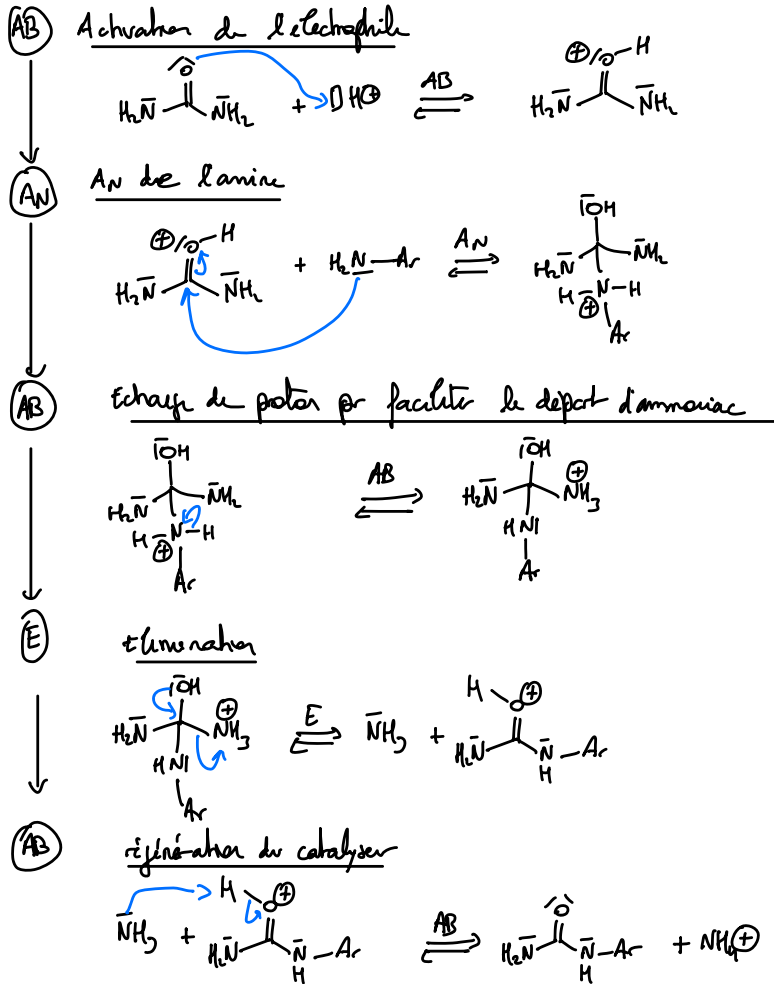 AB Activation de l'électrophile
O
H₂N̄ N̄H₂ + H⊕ AB ⇌ ⊕ O H H₂N̄ N̄H₂
AN AN de l'amine
⊕ O H ĪOH
H₂N̄ N̄H₂ + H₂N Ar AN ⇌ H₂N̄ N̄H₂
H N H
⊕ Ar
AB Echange de proton pr faciliter le départ d'ammoniac
ĪOH ĪOH ⊕
H₂N̄ N̄H₂ AB ⇌ H₂N̄ NH₃
H N H HNI
⊕ Ar Ar
E Elimination
ĪOH ⊕ H O ⊕
H₂N̄ NH₃ E ⇌ N̄H₃ + H₂N̄ N̄ Ar
HNI H
Ar
AB régénération du catalyseur
H O ⊕ O
N̄H₃ + H₂N̄ N̄ Ar AB ⇌ H₂N̄ N̄ Ar + NH₄⊕
H H